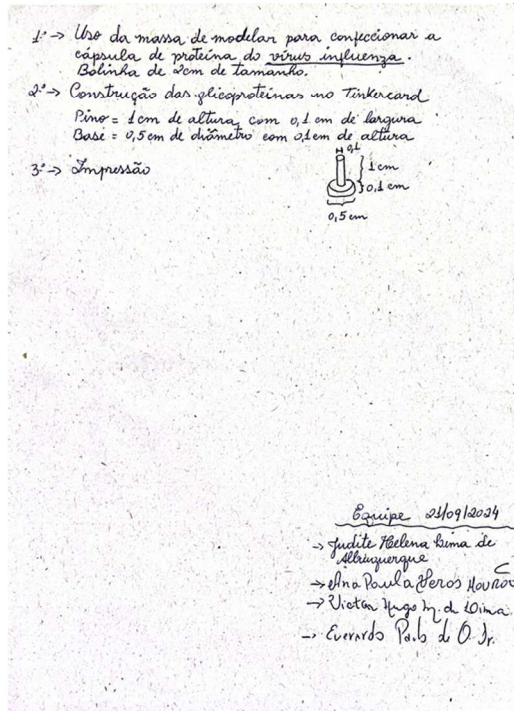 1º → Uso da massa de modelar para confeccionar a
cápsula de proteína do vírus influenza.
Bolinha de 2cm de tamanho.
2º → Construção das glicoproteínas no Tinkercard
Pino = 1cm de altura, com 0,1 cm de largura
Base = 0,5cm de diâmetro com 0,1cm de altura
3º → Impressão
0,1
1cm
0,1 cm
0,5 cm
Equipe 21/09/2024
→ Judite Helena Lima de
Albuquerque
→ Ana Paula
→ Victor Hugo de Lima
→ Everardo de O. Jr.